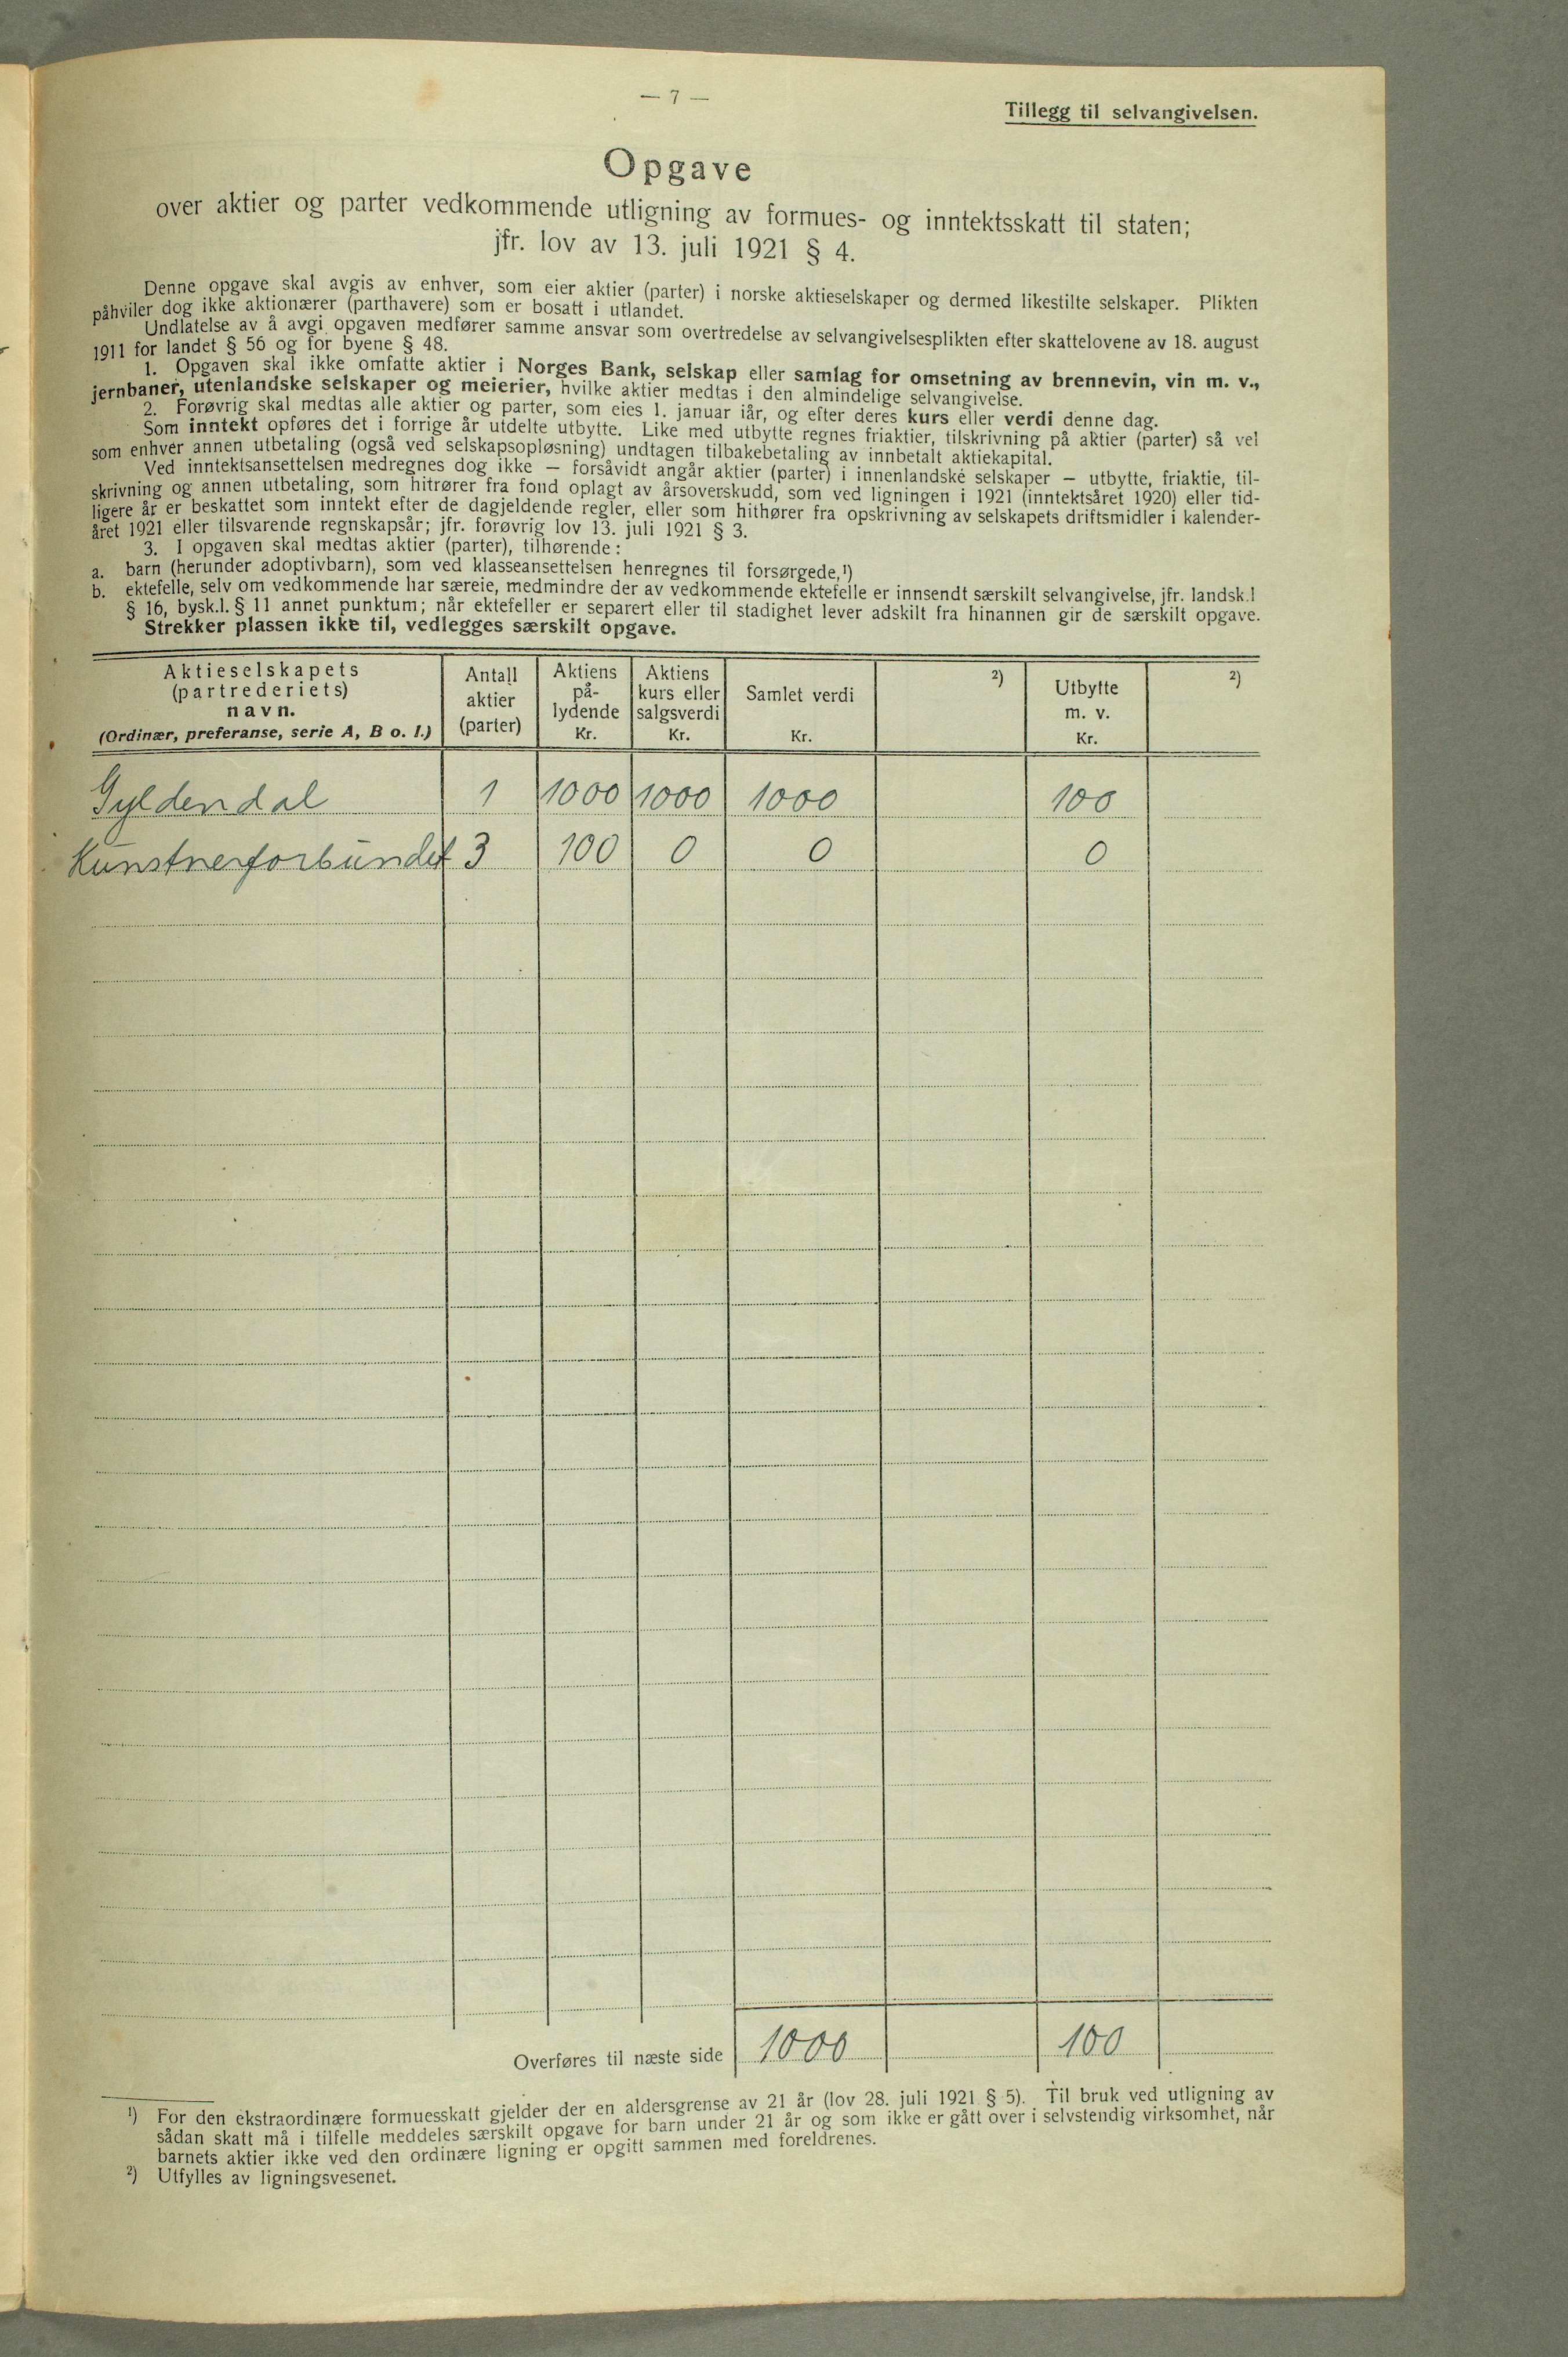 — 7 —
Tillegg til selvangivelsen.
Opgave
over aktier og parter vedkommende utligning av formues- og inntektsskatt til staten;
jfr. lov av 13. juli 1921 § 4.
Denne opgave skal avgis av enhver, som eier aktier (parter) i norske aktieselskaper og dermed likestilte selskaper. Plikten
påhviler dog ikke aktionærer (parthavere) som er bosatt i utlandet.
Undlatelse av å avgi opgaven medfører samme ansvar som overtredelse av selvangivelsesplikten efter skattelovene av 18. august
1911 for landet § 56 og for byene § 48.
1. Opgaven skal ikke omfatte aktier i Norges Bank, selskap eller samlag for omsetning av brennevin, vin m. v.,
jernbaner, utenlandske selskaper og meierier, hvilke aktier medtas i den almindelige selvangivelse.
2. Forøvrig skal medtas alle aktier og parter, som eies 1. januar iår, og efter deres kurs eller verdi denne dag.
Som inntekt opføres det i forrige år utdelte utbytte. Like med utbytte regnes friaktier, tilskrivning på aktier (parter) så vel
som enhver annen utbetaling (også ved selskapsopløsning) undtagen tilbakebetaling av innbetalt aktiekapital.
Ved inntektsansettelsen medregnes dog ikke — forsåvidt angår aktier (parter) i innenlandske selskaper — utbytte, friaktie, til-
skrivning og annen utbetaling, som hitrører fra fond oplagt av årsoverskudd, som ved ligningen i 1921 (inntektsåret 1920) eller tid-
ligere år er beskattet som inntekt efter de dagjeldende regler, eller som hithører fra opskrivning av selskapets driftsmidler i kalender-
året 1921 eller tilsvarende regnskapsår; jfr. forøvrig lov 13. juli 1921 § 3.
3. I opgaven skal medtas aktier (parter), tilhørende:
a. barn (herunder adoptivbarn), som ved klasseansettelsen henregnes til forsørgede,¹)
b. ektefelle, selv om vedkommende har særeie, medmindre der av vedkommende ektefelle er innsendt særskilt selvangivelse, jfr. landsk.l
§ 16, bysk.l. § 11 annet punktum; når ektefeller er separert eller til stadighet lever adskilt fra hinannen gir de særskilt opgave.
Strekker plassen ikke til, vedlegges særskilt opgave.
Aktieselskapets (partrederiets) navn. (Ordinær, preferanse, serie A, B o. l.)
Antall aktier (parter)
Aktiens på- lydende Kr.
Aktiens kurs eller salgsverdi Kr.
Samlet verdi Kr.
²)
Utbytte m. v. Kr.
²)
Gyldendal 1 1000 1000 1000 100
Kunstnerforbundet 3 100 0 0 0
Overføres til næste side 1000 100
¹) For den ekstraordinære formuesskatt gjelder der en aldersgrense av 21 år (lov 28. juli 1921 § 5). Til bruk ved utligning av
sådan skatt må i tilfelle meddeles særskilt opgave for barn under 21 år og som ikke er gått over i selvstendig virksomhet, når
barnets aktier ikke ved den ordinære ligning er opgitt sammen med foreldrenes.
²) Utfylles av ligningsvesenet.